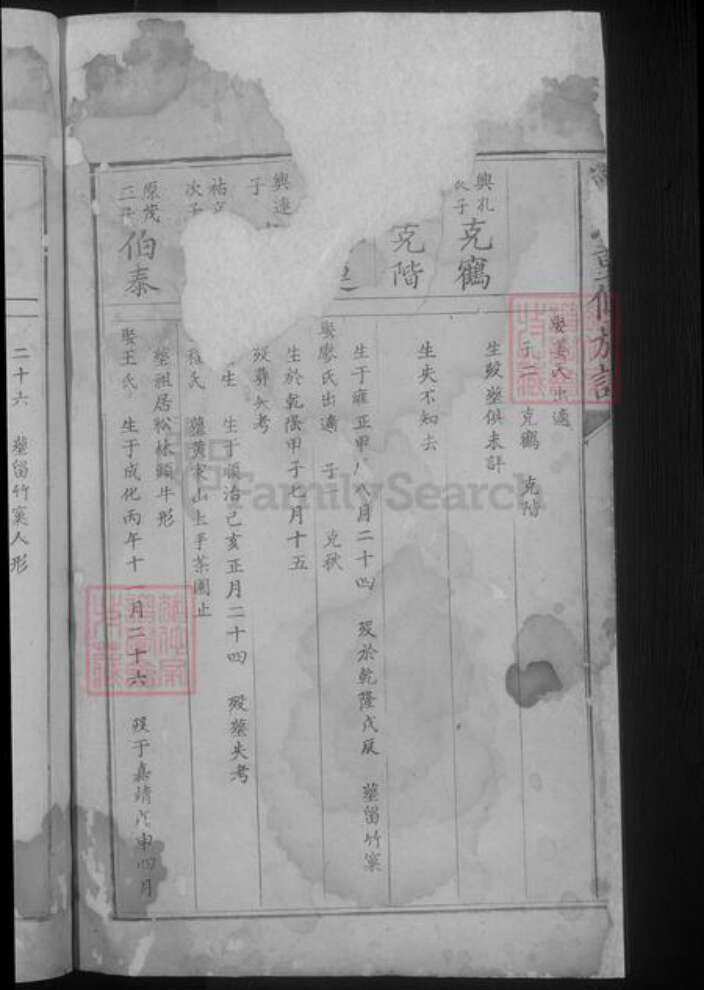 娶姜氏出適
子二 克鶴 克階
興孔
次子
克鶴
生歿塟俱未詳
克階
生失不知去
生于雍正甲 八月二十四 歿於乾隆戊辰 塟留竹窠
娶廖氏出適 子一 克秋
興達
子
生於乾隆甲子七月十五
歿葬失考
次子
生 生于順治己亥正月二十四 歿塟失考
程氏 塟黄家山上手茶園止
塟祖居松林頭牛形
原茂
三子
伯泰
娶王氏 生于成化丙午十一月二十六 歿于嘉靖戊申四月
二十六 塟留竹窠人形
FamilySearch